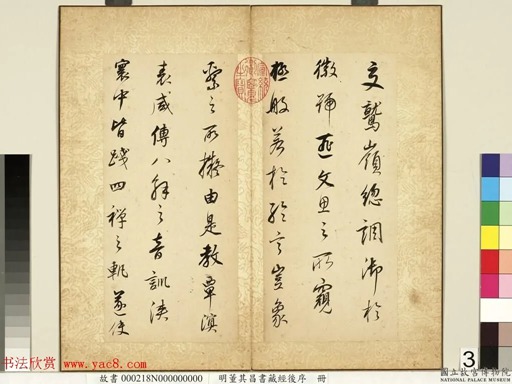 交鷲嶺總調御於
徽號匪文思之所窺
極般若於綸言豈象
繫之所擬由是教覃溟
表咸傳八解之音訓浹
寰中皆踐四禪之軌遂使
3
國立故宮博物院
NATIONAL PALACE MUSEUM
书法欣赏
www.yac8.com
故書 000218N000000000 明董其昌書藏經後序 冊